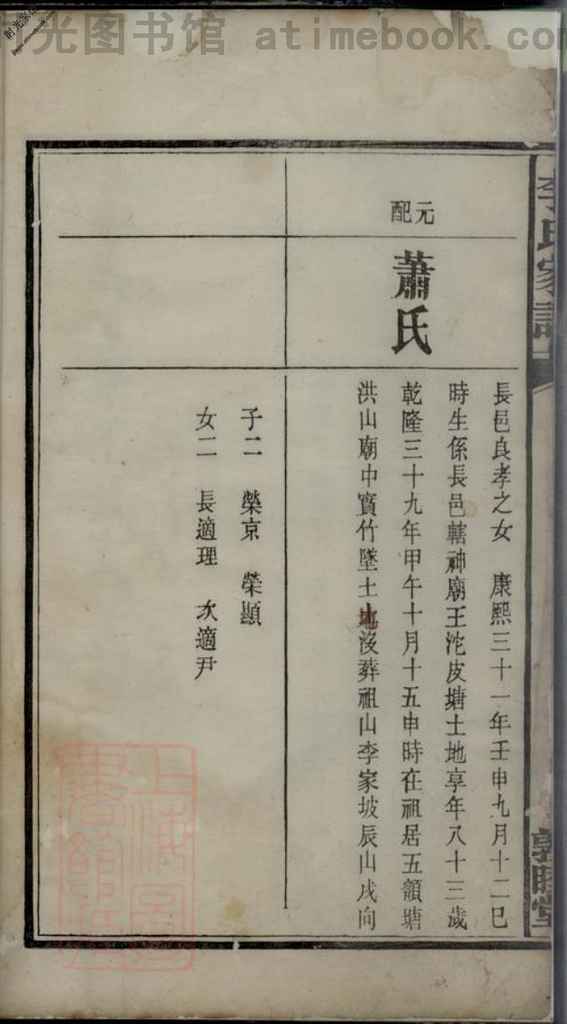 时光图书馆 atimebook.com
李氏家譜
敦睦堂
元配
蕭氏
長邑良孝之女 康熙三十一年壬申九月十二巳
時生係長邑轄神廟王沱皮塘土地享年八十三歲
乾隆三十九年甲午十月十五申時在祖居五韻塘
洪山廟中賓竹墜土地沒葬祖山李家坡辰山戌向
子二 榮京 榮顯
女二 長適理 次適尹